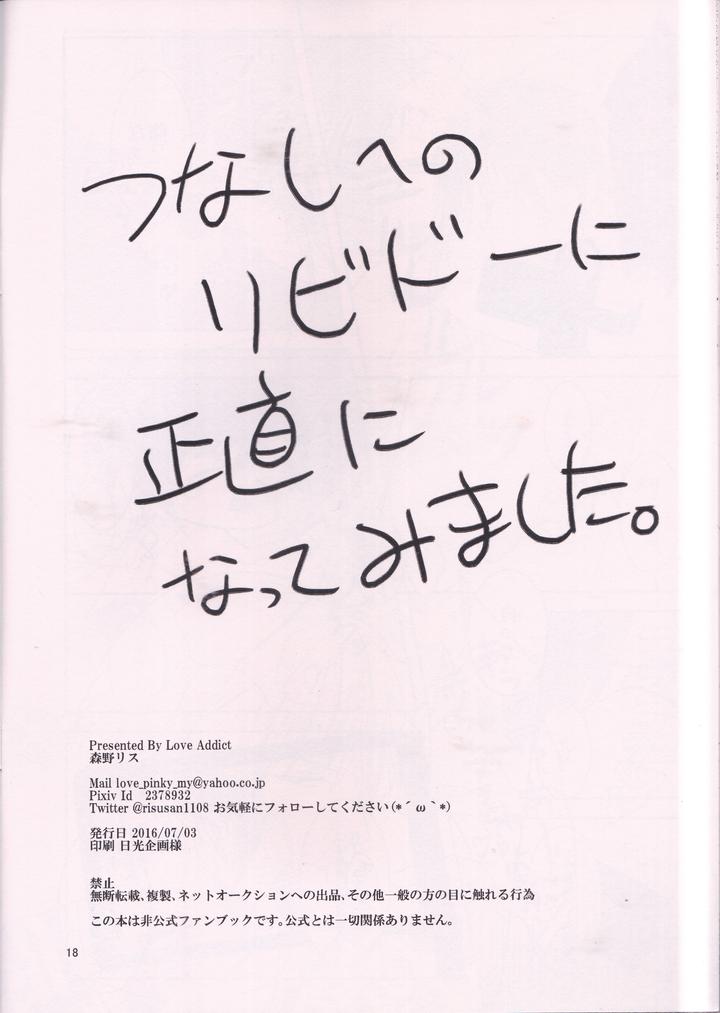 つなしへの
リビドーに
正直に
なってみました。
Presented By Love Addict
森野リス
Mail love_pinky_my@yahoo.co.jp
Pixiv Id 2378932
Twitter @risusan1108 お気軽にフォローしてください(*´ω｀*)
発行日 2016/07/03
印刷 日光企画様
禁止
無断転載、複製、ネットオークションへの出品、その他一般の方の目に触れる行為
この本は非公式ファンブックです。公式とは一切関係ありません。
18